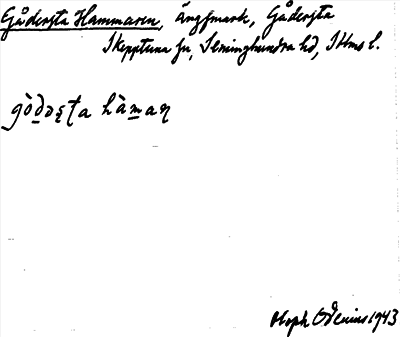 Gådersta Hammaren, ängsmark, Gådersta
Skepptuna sn, Seminghundra hd, Sthms l.
gò̀dəʂʈa hàmaɳ
Oloph Odenius 1943